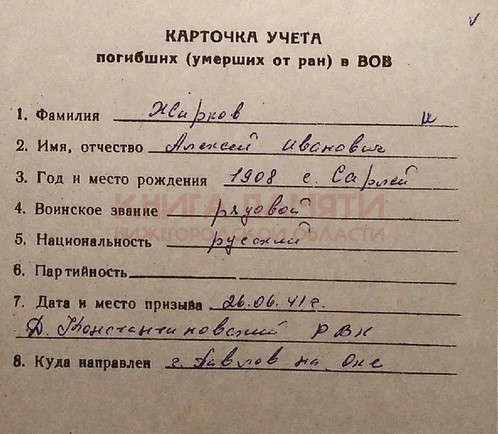 КАРТОЧКА УЧЕТА
погибших (умерших от ран) в ВОВ
1. Фамилия Жарков
2. Имя, отчество Алексей Иванович
3. Год и место рождения 1908 с. Сарлей
КНИГА ПАМЯТИ
4. Воинское звание рядовой
НИЖЕГОРОДСКОЙ ОБЛАСТИ
5. Национальность русский
6. Партийность
7. Дата и место призыва 26.06.41г.
Д. Константиновский РВК
8. Куда направлен г. Павлов на Оке